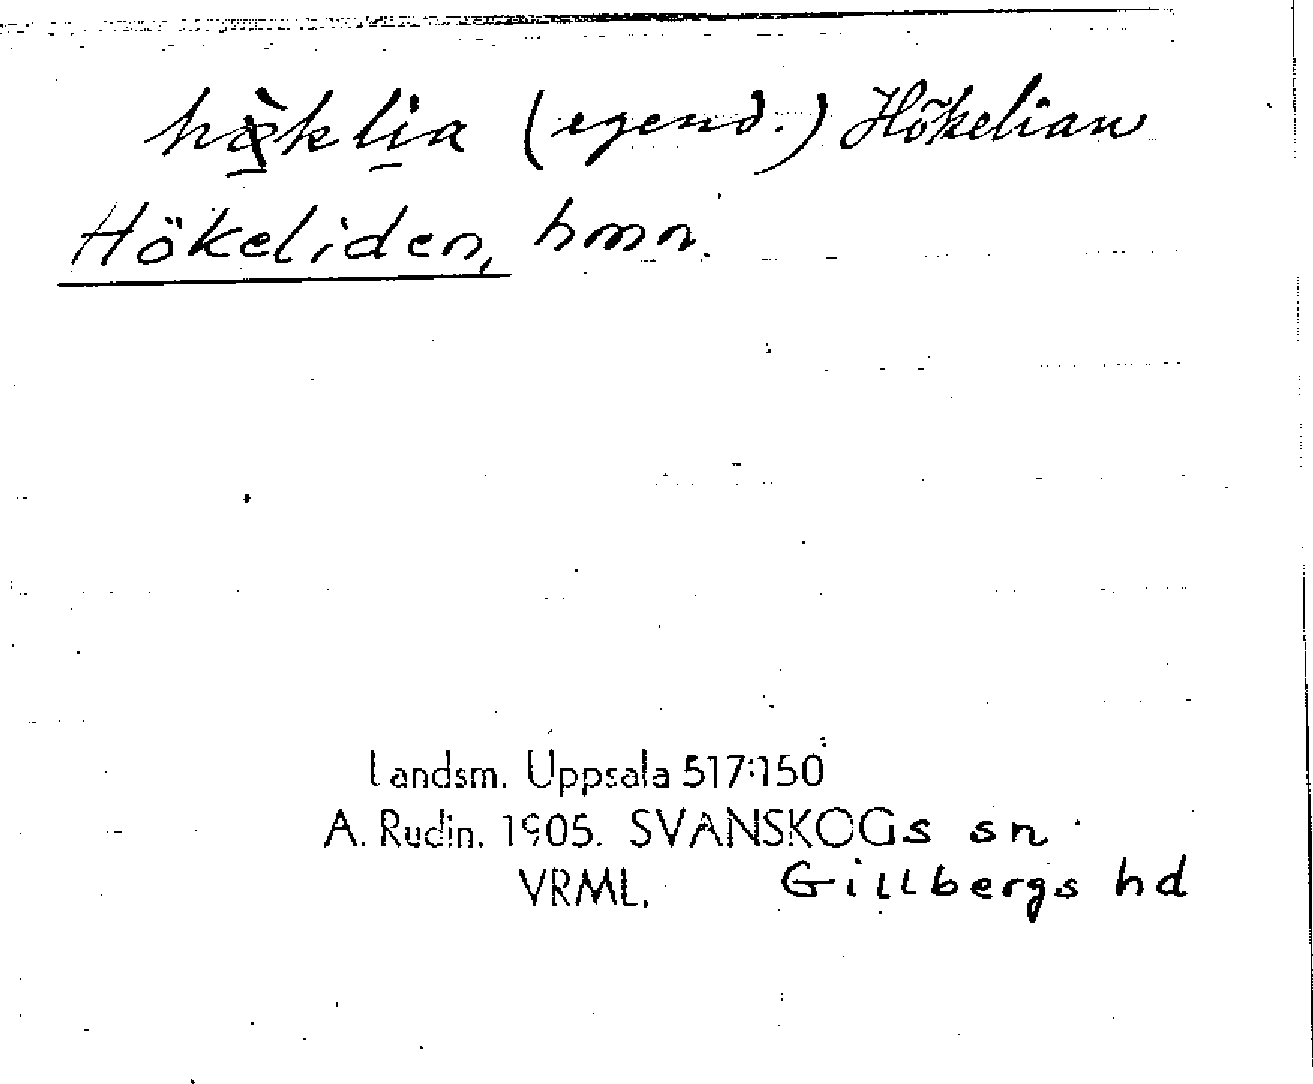 hø̀klia (egend.) Hökelian
Hökeliden, hmn.
Landsm. Uppsala 517:150
A. Rudin. 1905. SVANSKOGs sn
VRML. Gillbergs hd